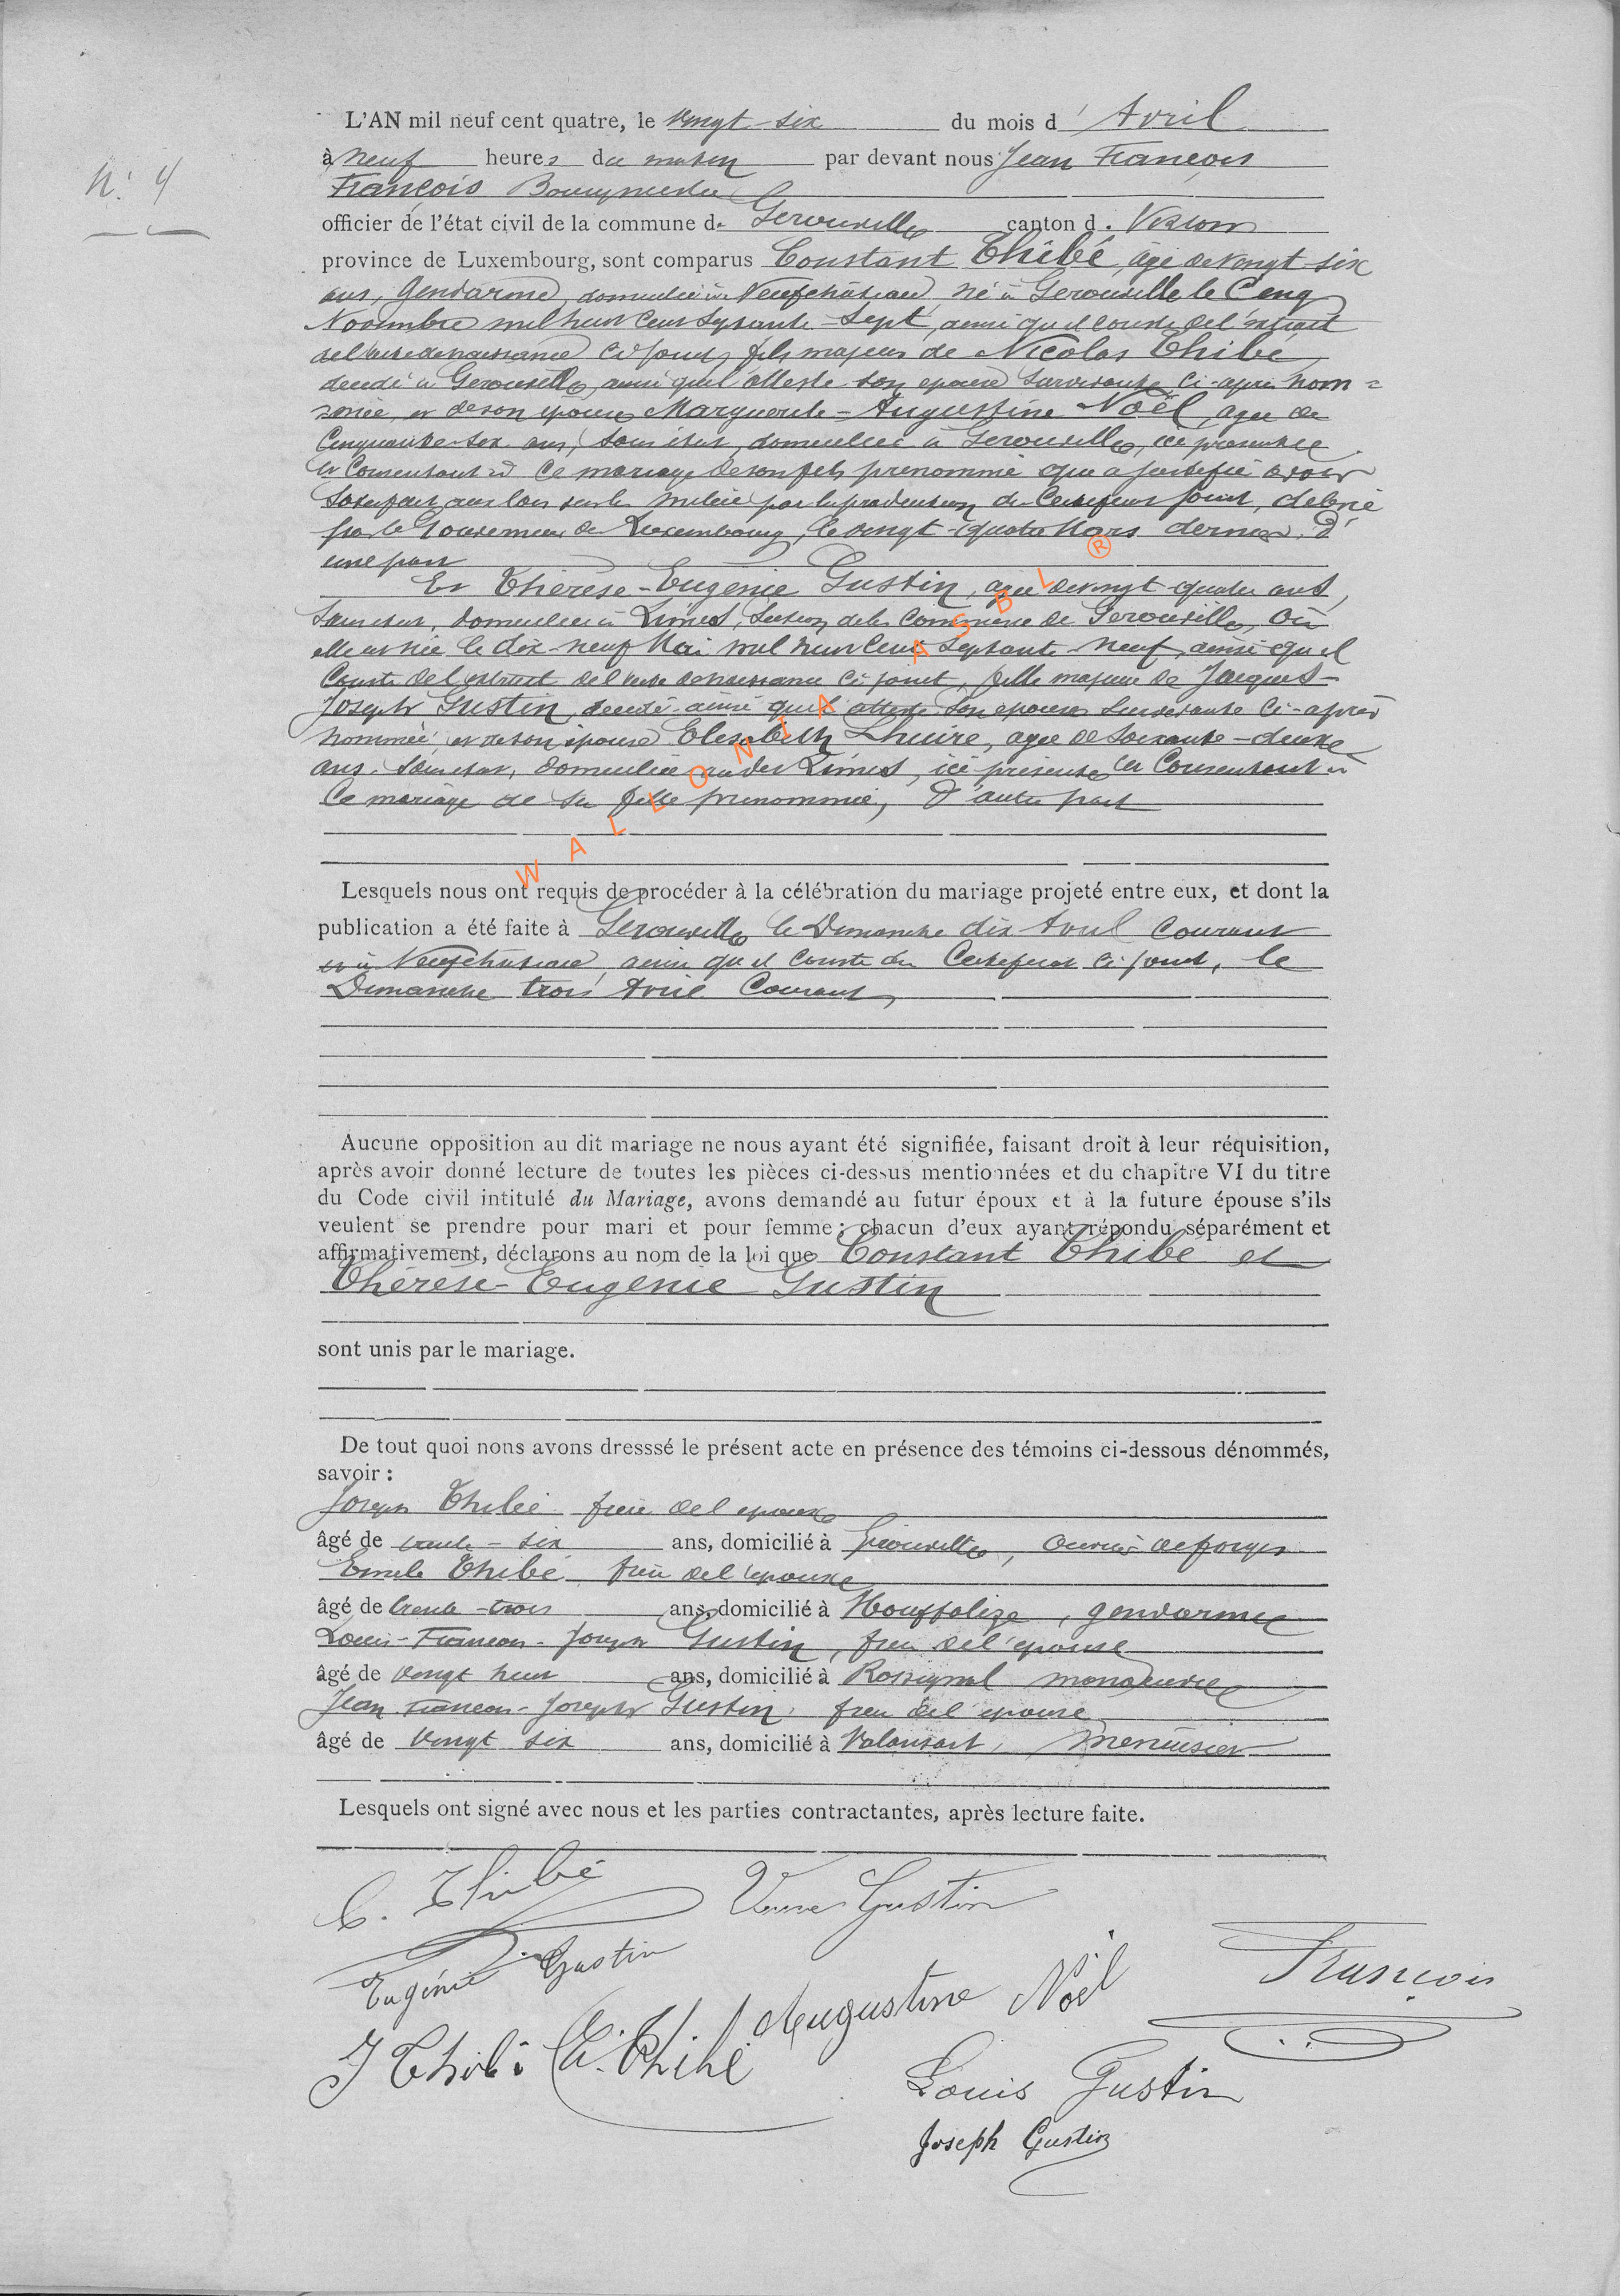 N° 4
L'AN mil neuf cent quatre, le vingt-six du mois d' Avril
à neuf heures du matin par devant nous Jean François
François Bourgmestre
officier de l'état civil de la commune de Gerouville canton d. Virton
province de Luxembourg, sont comparus Constant Thibé, âgé de vingt six
ans, gendarme, domicilié à Neufchâteau né à Gerouville le Cinq
Novembre mil huit cent septante-sept, ainsi qu'il conste de l'extrait
de l'acte de naissance ci joint, fils majeur de Nicolas Thibé
décédé à Gerouville, ainsi que l'atteste son épouse survivante ci-après nom=
mée, et de son épouse Marguerite-Augustine Noël, agée de
Cinquante-six ans, sans état, domiciliée à Gerouville, ici présente
et consentant à ce mariage de son fils prénommé que a justifié avoir
satisfait aux lois sur la milice par la production du certificat joint, délivré
par le Gouverneur du Luxembourg, le vingt-quatre Mars dernier, d'
une part
Et Thérèse-Eugénie Gustin, agée de vingt-quatre ans,
sans état, domiciliée à Limes, section de la commune de Gerouville, où
elle est née le dix-neuf Mai mil huit cent septante-neuf, ainsi qu'il
conste de l'extrait de l'acte de naissance ci joint, fille majeure de Jacques-
Joseph Gustin, décédé ainsi que l'atteste son épouse survivante ci-après
nommée, et de son épouse Elisabeth Lhuire, agée de soixante-deux
ans, sans état, domiciliée au dit Limes, ici présente et consentant à
ce mariage de sa fille prénommée, d'autre part
WALLONIA ASBL ®
Lesquels nous ont requis de procéder à la célébration du mariage projeté entre eux, et dont la
publication a été faite à Gerouville le Dimanche dix Avril courant
et à Neufchâteau, ainsi qu'il conste du certificat ci-joint, le
Dimanche trois Avril courant,
Aucune opposition au dit mariage ne nous ayant été signifiée, faisant droit à leur réquisition,
après avoir donné lecture de toutes les pièces ci-dessus mentionnées et du chapitre VI du titre
du Code civil intitulé du Mariage, avons demandé au futur époux et à la future épouse s'ils
veulent se prendre pour mari et pour femme; chacun d'eux ayant répondu séparément et
affirmativement, déclarons au nom de la loi que Constant Thibé et
Thérèse-Eugénie Gustin
sont unis par le mariage.
De tout quoi nons avons dresssé le présent acte en présence des témoins ci-dessous dénommés,
savoir :
Joseph Thibé frère de l'époux
âgé de trente-six ans, domicilié à Gerouville, ouvrier de forges
Emile Thibé frère de l'époux
âgé de trente-trois ans, domicilié à Houffalize, gendarme
Louis-François-Joseph Gustin, frère de l'épouse
âgé de vingt huit ans, domicilié à Rossignol manoeuvre
Jean François-Joseph Gustin, frère de l'épouse
âgé de vingt six ans, domicilié à Valansart, menuisier
Lesquels ont signé avec nous et les parties contractantes, après lecture faite.
C. Thibé Veuve Gustin
Eugénie Gustin François
J Thibé E. Thibé Augustine Noël
Louis Gustin
Joseph Gustin